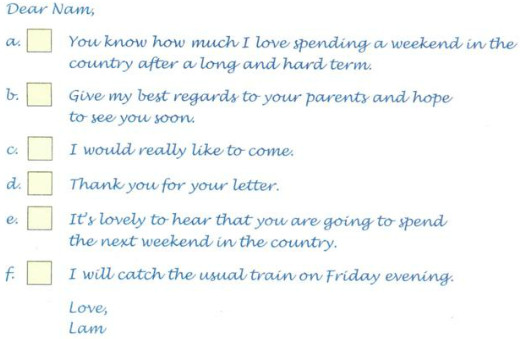 Dear Nam,
a. You know how much I love spending a weekend in the
country after a long and hard term.
b. Give my best regards to your parents and hope
to see you soon.
c. I would really like to come.
d. Thank you for your letter.
e. It's lovely to hear that you are going to spend
the next weekend in the country.
f. I will catch the usual train on Friday evening.
Love,
Lam